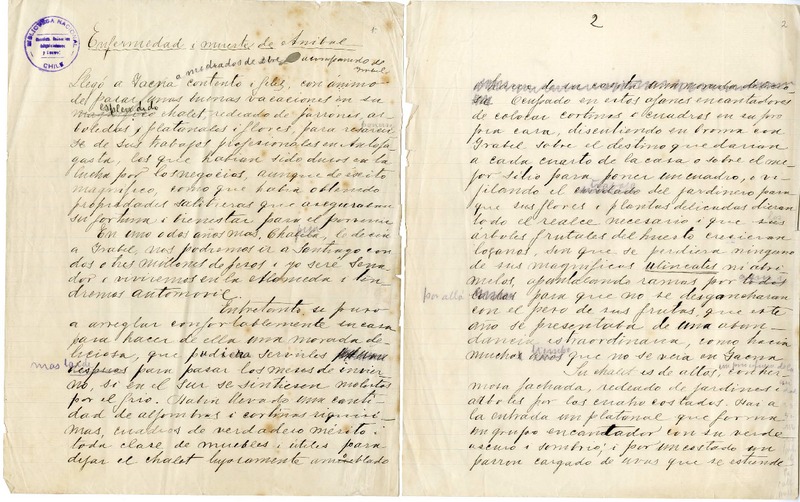 BIBLIOTECA NACIONAL
CHILE
Enfermedad i muerte de Anibal
a mediados de acompañado de
Llegó a Tacna contento i feliz, con ánimo
de pasar unas buenas vacaciones en su
espléndido
chalet, rodeado de jarrones, ar-
boledas y platanales i flores, para
se de sus trabajos profesionales en Antofa-
gasta, los que habían sido duros en la
lucha por los negocios, aunque de éxito
magnífico, como que había obtenido
propiedades salitreras que aseguraban
su fortuna i bienestar para el porvenir
En uno o dos años mas, le decía
a Ysabel, nos podremos ir a Santiago con
dos o tres millones de pesos i yo seré Sena-
dor i viviremos en la Alameda i ten-
dremos automóvil.
Entretanto se puso
a arreglar confortablemente en casa
para hacer de ella una morada de-
liciosa, que pudiera servirles
mas tarde
para pasar los meses de invier-
no, si en el sur se sintiesen molestos
por el frío. Había llevado una canti-
dad de alfombras i cortinas riquísi-
mas, cuadros de verdadero mérito i
toda clase de muebles i útiles para
dejar el chalet lujosamente amoblado
2
2
Ocupado en estos afanes encantadores
de colocar cortinas o cuadros en su pro-
pia casa, discutiendo en broma con
Ysabel sobre el destino que darían
a cada cuarto de la casa o sobre el me-
jor sitio para poner un cuadro, o vi-
jilando el del jardinero para
que sus flores i plantas delicadas dieran
todo el realce necesario i que sus
árboles frutales del huerto crecieran
lozanos, sin que se perdiera ninguno
de sus magníficos ni chiri-
melos, apuntalando ramas por
por allá
para que no se desgancharan
con el peso de sus frutas, que este
año se presentaba de una abun-
dancia estraordinaria, como hacía
mucho tiempo que no se veía en Tacna
Su chalet es de altos, con her-
mosa fachada, rodeado de jardines i
árboles por los cuatro costados. Hai a
la entrada un platanal que forma
un grupo encantador con su verde
oscuro i sombrío; i por un costado un
parron cargado de uvas que se estiende